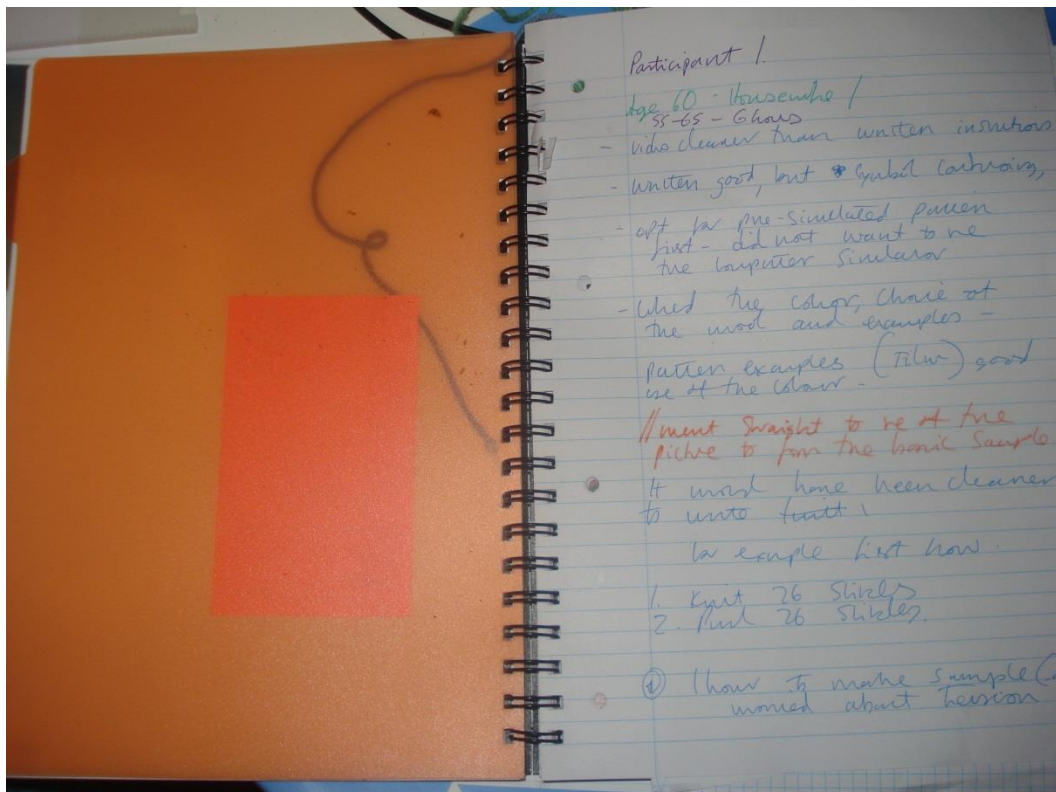 Participant 1.
Age 60 - Housewife /
55-65 - 6 hours
- video clearer than written instructions
- written good, but * symbol confusing,
- opt for pre-simulated pattern
first - did not want to use
the computer simulator
- liked the colour, choice of
the and examples -
pattern examples (Film) good
use of the colour -
// went straight to use of the
picture to form the basic sample
It would have been clearer
to write
for example first row.
1. Knit 26 stitches
2. Purl 26 stitches.
1 hour to make sample (
worried about tension